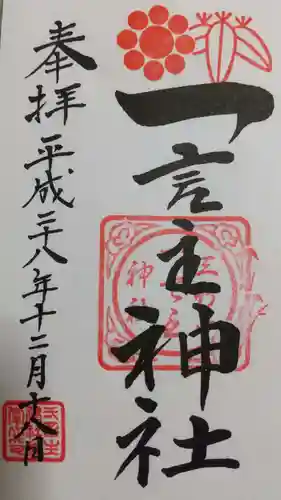 一言主神社
奉拝 平成二十八年十二月十八日